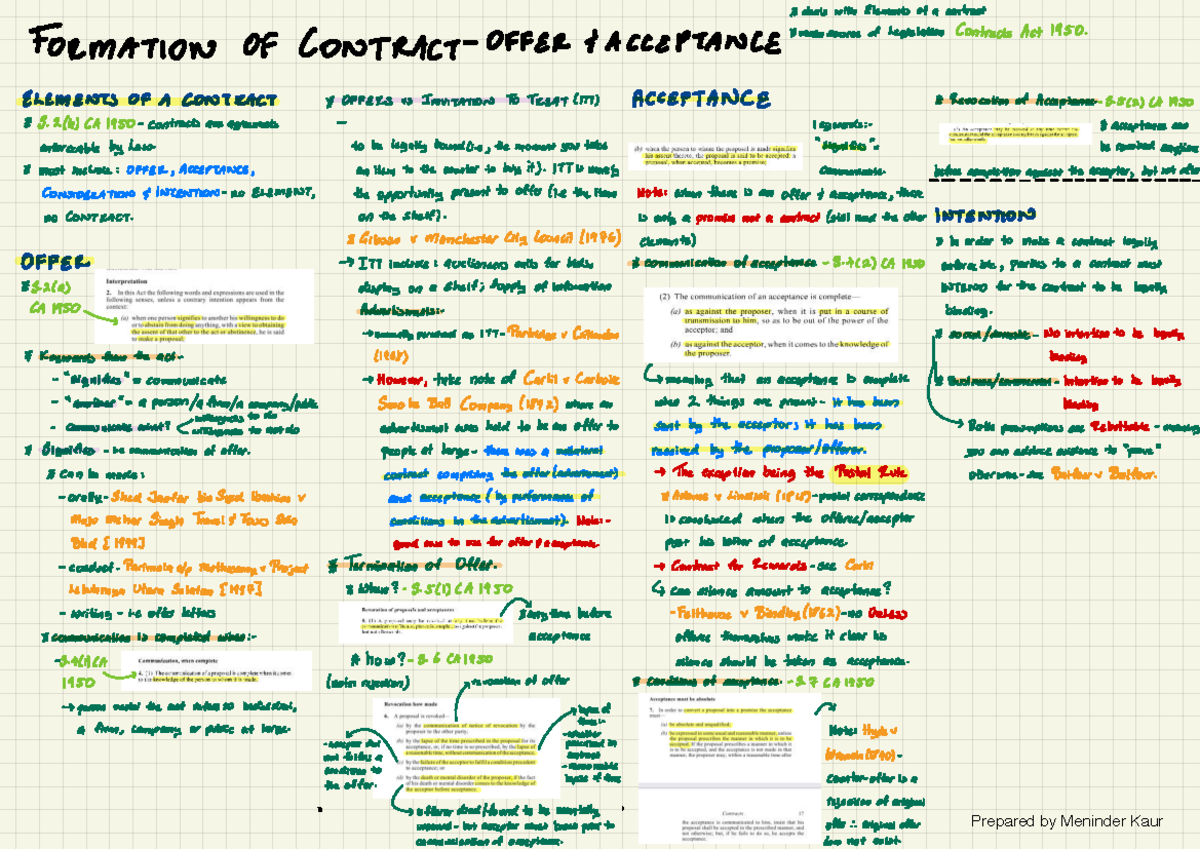 FORMATION OF CONTRACT - OFFER & ACCEPTANCE
* deals with Elements of a contract
* main source of legislation Contracts Act 1950.
ELEMENTS OF A CONTRACT
* S.2(h) CA 1950 - contracts are agreements
enforceable by law.
* must include: OFFER, ACCEPTANCE,
CONSIDERATION & INTENTION - no ELEMENT,
no CONTRACT.
OFFER
* S.2(a)
CA 1950
Interpretation
2. In this Act the following words and expressions are used in the
following senses, unless a contrary intention appears from the
context:
(a) when one person signifies to another his willingness to do
or to abstain from doing anything, with a view to obtaining
the assent of that other to the act or abstinence, he is said
to make a proposal;
* Keywords from the act -
- "Signifies" = communicate
- "another" = a person/a firm/a company/public
- communicate what?
willingness to do
willingness to not do
* Signifies - i.e communication of offer.
* Can be made:
- orally - Syed Jaafar bin Syed Ibrahim v
Maju Mehar Singh Travel & Tours Sdn
Bhd [1999]
- conduct - v Project
Lebuhraya Utara Selatan [1997]
- writing - i.e offer letters
* communication is completed when:-
- S.4(1) CA
1950
Communication, when complete
4. (1) The communication of a proposal is complete when it comes
to the knowledge of the person to whom it is made.
→ person under the act refers to individual,
a firm, company or public at large.
* OFFERS vs INVITATION TO TREAT (ITT)
to be legally bound (i.e, the moment you take
an item to the counter to buy it). ITT is merely
the opportunity present to offer (i.e the item
on the shelf).
* Gibson v Manchester City Council (1976)
→ ITT include: auctioneers calls for bids,
display on a shelf; supply of information
Advertisements:-
→ usually perceived as ITT - Partridge v Crittenden
(1968)
→ However, take note of Carlil v Carbolic
Smoke Ball Company (1892) where an
advertisement was held to be an offer to
people at large - there was a unilateral
contract comprising the offer (advertisement)
and acceptance (by performance of
conditions in the advertisement). Note:-
good case to use for offer & acceptance.
* Termination of Offer.
* When? - S.5(1) CA 1950
Revocation of proposals and acceptances
Anytime before
acceptance
* how? - S.6 CA 1950
revocation of offer
Revocation how made
6. A proposal is revoked—
(a) by the communication of notice of revocation by the
proposer to the other party;
(b) by the lapse of the time prescribed in the proposal for its
acceptance, or, if no time is so prescribed, by the lapse of
a reasonable time, without communication of the acceptance;
(c) by the failure of the acceptor to fulfil a condition precedent
to acceptance; or
(d) by the death or mental disorder of the proposer, if the fact
of his death or mental disorder comes to the knowledge of
the acceptor before acceptance.
- acceptor did
not fulfil a
condition to
the offer.
- lapse of
time:-
- whether
prescribed in
contract
- reasonable
lapse of time
→ offeror died/found to be mentally
unsound - but acceptor must know prior to
communication of acceptance.
ACCEPTANCE
(b) when the person to whom the proposal is made signifies
his assent thereto, the proposal is said to be accepted: a
proposal, when accepted, becomes a promise;
Keywords:-
"Signifies" =
communicate
Note: when there is an offer & acceptance, there
is only a promise not a contract (still need the other
elements)
* communication of acceptance - S.4(2) CA 1950
(2) The communication of an acceptance is complete—
(a) as against the proposer, when it is put in a course of
transmission to him, so as to be out of the power of the
acceptor; and
(b) as against the acceptor, when it comes to the knowledge of
the proposer.
→ meaning that an acceptance is complete
when 2 things are present - it has been
sent by the acceptor & it has been
received by the proposer/offeror.
→ The exception being the Postal Rule
* Adams v Lindsell (1818) - postal correspondence
is concluded when the offeree/acceptor
post his letter of acceptance.
→ Contract for Rewards - see Carlil
→ can silence amount to acceptance?
- Felthouse v Bindley (1862) - no UNLESS
offeree themselves make it clear his
silence should be taken as acceptance.
* Conditions of acceptance - S.7 CA 1950
Acceptance must be absolute
7. In order to convert a proposal into a promise the acceptance
must—
(a) be absolute and unqualified;
(b) be expressed in some usual and reasonable manner, unless
the proposal prescribes the manner in which it is to be
accepted. If the proposal prescribes a manner in which it
is to be accepted, and the acceptance is not made in that
manner, the proposer may, within a reasonable time after
Contracts 17
the acceptance is communicated to him, insist that his
proposal shall be accepted in the prescribed manner, and
not otherwise; but, if he fails to do so, he accepts the
acceptance.
Note: Hyde v
Wrench (1840) -
counter-offer is a
rejection of original
offer ∴ original offer
does not exist.
* Revocation of Acceptance - S.5(2) CA 1950
* acceptance can
be revoked anytime
before completion against the acceptor, but not after
INTENTION
* In order to make a contract legally
enforceable, parties to a contract must
INTEND for the contract to be legally
binding.
* social/domestic - No intention to be legally
binding
* Business/commercial - intention to be legally
binding
→ Both presumptions are Rebuttable - meaning
you can adduce evidence to "prove"
otherwise - see Balfour v Balfour.
Prepared by Meninder Kaur